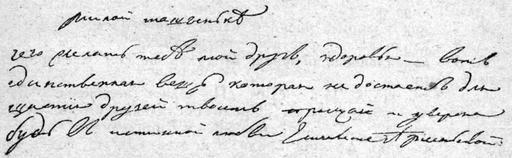 милой машенькѣ
чего желать тебѣ мой другъ, здоровье — вотъ
единственная вещь которая не достаетъ для
щастія друзей твоихъ прощай и уверена
будь въ истинной любви